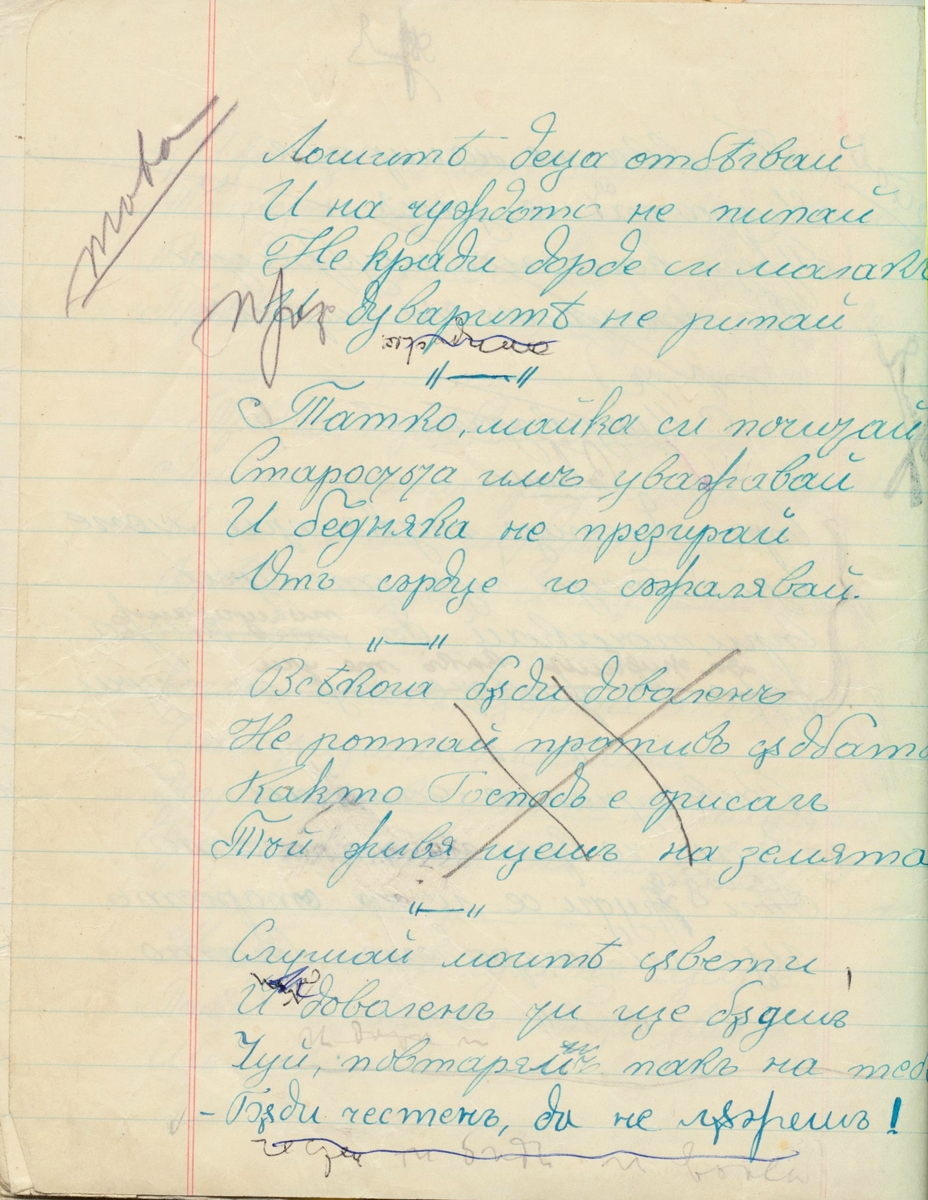 това
Лошитѣ деца отбѣгвай
И на чуждото не пипай
Не кради дорде си малакъ
През дуваритѣ не рипай
Татко, майка си почитай
Старостьта имъ уважавай
И бедняка не презирай
Отъ сърдце го съжалявай.
Всѣкога бѫди доволенъ
Не роптай противъ сѫдбата
Както Господь е орисалъ
Тъй живя щешъ на земята
Слушай моитѣ съвети
И доволенъ ти ще бѫдешъ
Чуй, повтарямъ пакъ на теб
– Бѫди честенъ, да не лѫжешъ!